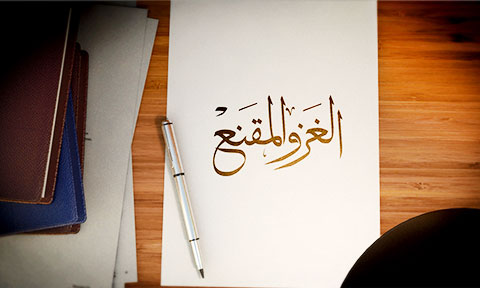 الغَزو المقَنعْ